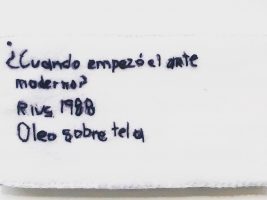 ¿Cuando empezó el ante
moderno?
Rius 1988
Oleo sobre tela